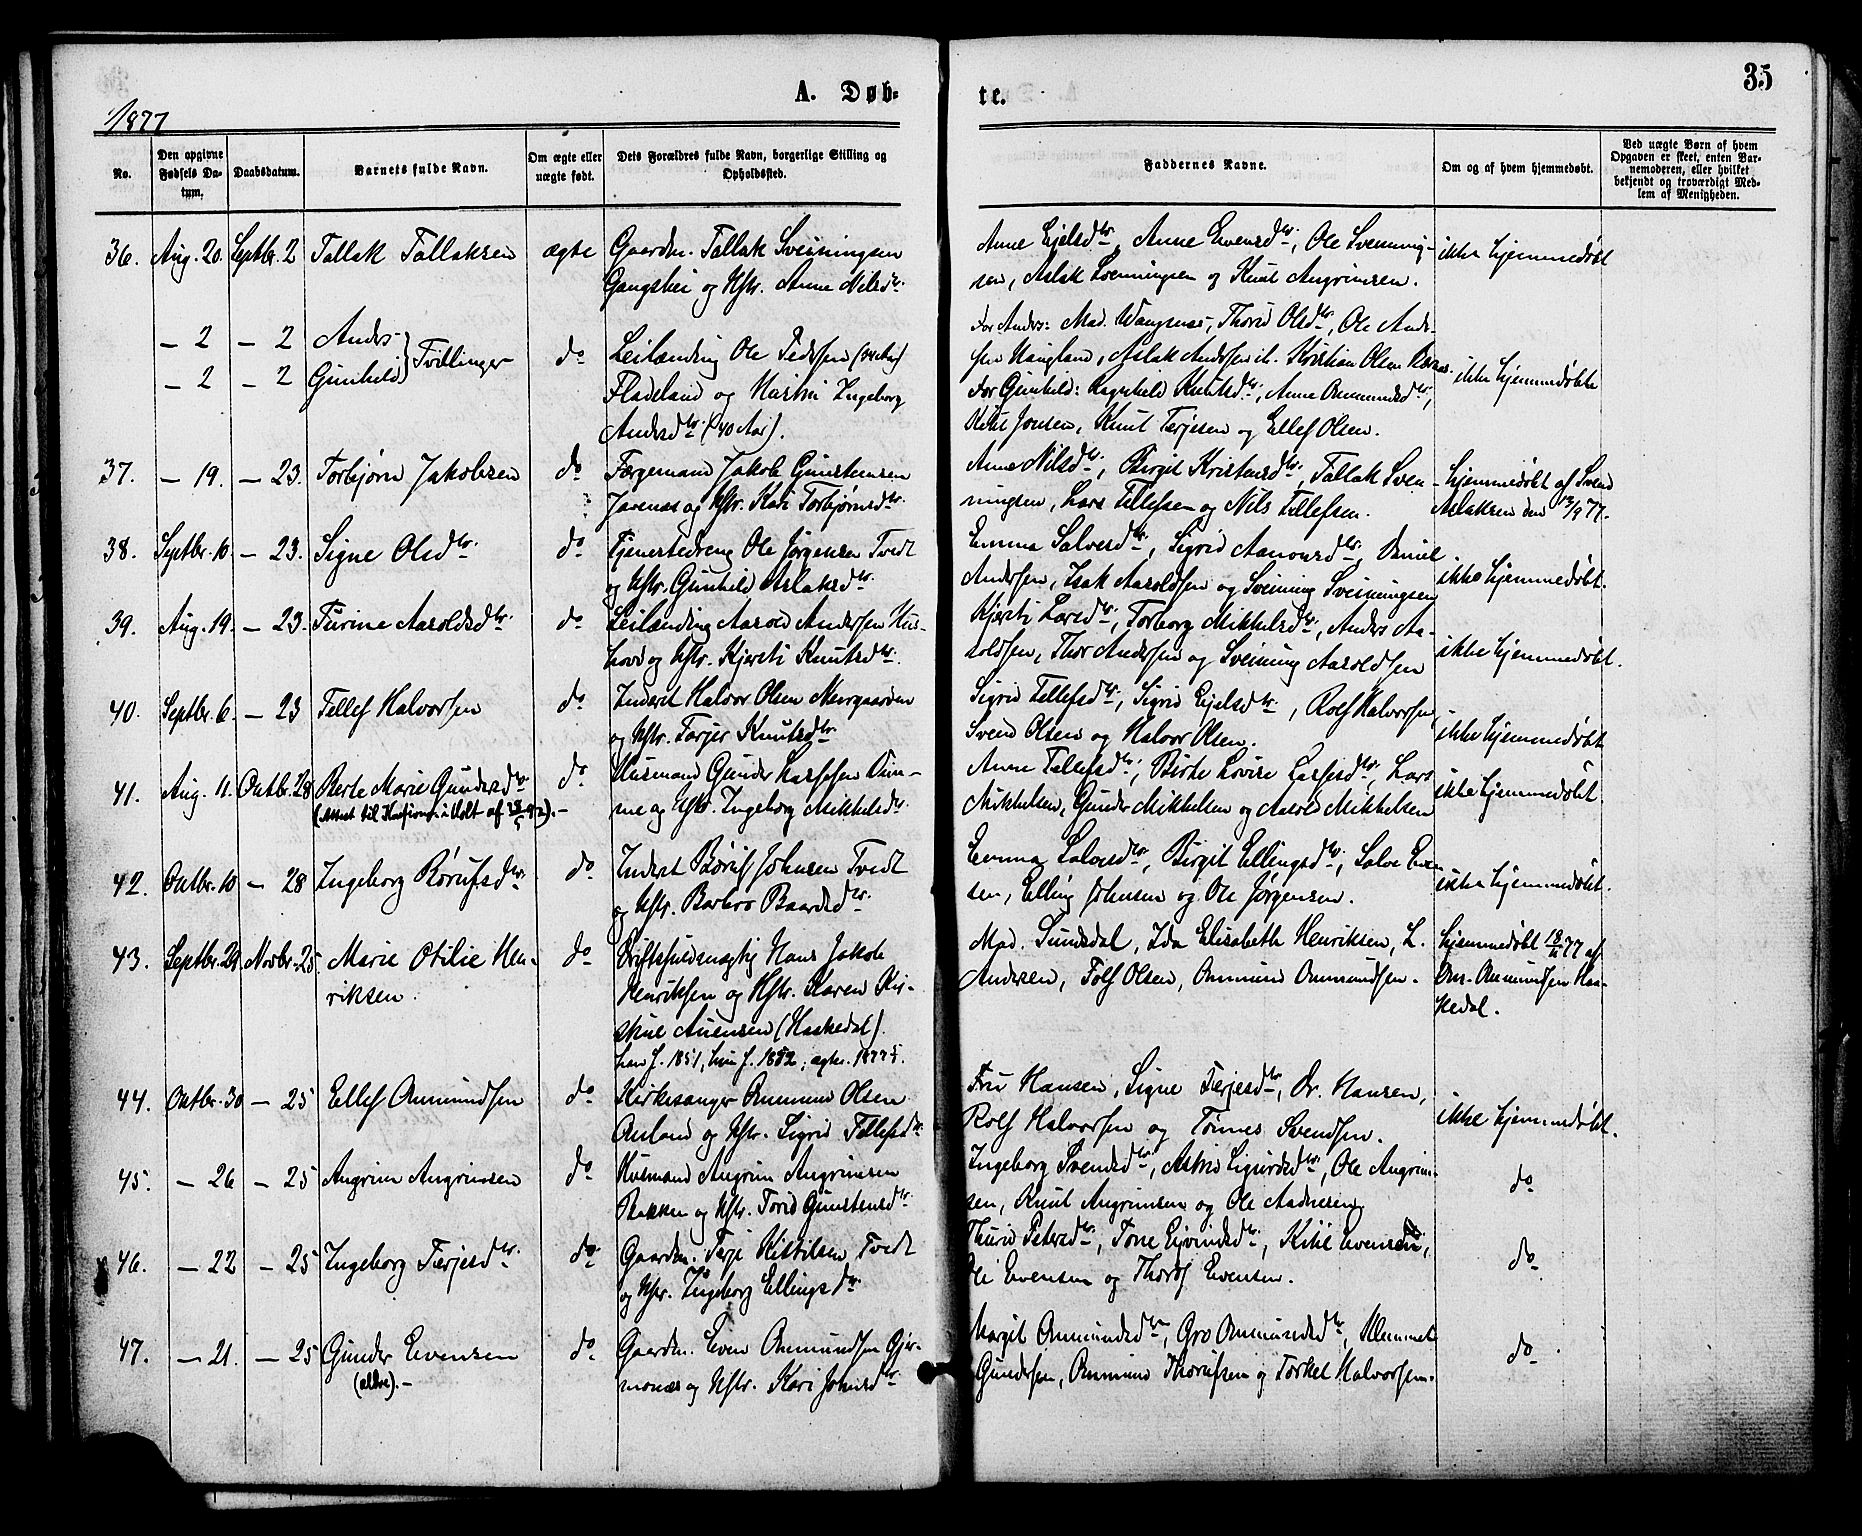 35
A. Døb-
te.
1877
No.
Den opgivne Fødsels Da-tum.
Daabsdatum.
Barnets fulde Navn.
Om ægte eller uægte født.
Dets Forældres fulde Navn, borgerlige Stilling og Opholdssted.
Faddernes Navne.
Om og af hvem hjemmedøbt.
Ved uægte Børn af hvem Opgaven er skeet, enten Bar-nemoderen, eller hvilket bekjendt og troværdigt Med-lem af Menigheden.
36. Aug. 20. Septbr. 2 Tallak Tallaksen ægte Gaardm. Tallak Sveinungsen
Gangshei og Hstr. Anne Nilsdtr.
Anne Ejelsdtr, Anne Evensdtr, Ole Svennung-
sen, Aslak Svenningsen og Knut Angrimsen.
ikke hjemmedøbt
— 2 — 2 Anders
— 2 — 2 Gunhild } Tvillinger do
Leilænding Ole Pedersen (44 Aar)
Fladeland og Hustru Ingeborg
Andersdtr. (40 Aar).
For Anders: Mad. Thorid Olsdtr, Ole Ander-
sen Haugland, Aslak Andersen Kristian Olsen
For Gunhild: Ragnhild Knutsdtr, Anne Ommundsdtr,
Jonsen, Knut Terjesen og Ellef Olsen.
ikke hjemmedøbte
37. — 19. — 23. Torbjørn Jakobsen do Færgemand Jakob Gunstensen
Jorenæs og Hstr. Kari Torbjørnsdtr.
Anne Nilsdtr, Birgit Kristensdtr, Tallak Sven-
ningsen, Lars Tellefsen og Nils Tellefsen.
hjemmedøbt af Svend
Aslaksen den 13/9 77.
38. Septbr. 10. — 23. Signe Olsdtr. do Tjenestedreng Ole Jørgensen Tvedt
og Hstr. Gunhild Aslaksdtr.
Emma Salvesdtr, Sigrid Aanonsdtr, Daniel
Andersen, Isak Aaroldsen og Sveinung Sveinungsen
ikke hjemmedøbt.
39. Aug. 19. — 23. Turine Aaroldsdtr. do Leilænding Aarold Andersen Hus-
hovd og Hstr. Kjersti Knutsdtr.
Kjersti Larsdtr, Torborg Mikkelsdtr, Anders Aa-
roldsen, Thor Andersen og Sveinung Aaroldsen
ikke hjemmedøbt.
40. Septbr. 6. — 23 Tellef Halvorsen do Inderst Halvor Olsen Neergaarden
og Hstr. Torjer Knutsdtr.
Sigrid Tellefsdtr, Sigrid Ejelsdtr, Rolf Halvorsen,
Svend Olsen og Halvor Olsen.
ikke hjemmedøbt
41. Aug. 11. Oktbr. 28 Berte Marie Gundersdtr do Husmand Gunder Larssen Dim-
me og Hstr. Ingeborg Mikkelsdtr.
(Attest til Konfirm. i Holt af 23/5 92). —
Anne Tellefsdtr, Birte Lovise Larsesdtr, Lars
Mikkelsen, Gunder Mikkelsen og Aarold Mikkelsen
ikke hjemmedøbt.
42. Oktbr. 10 — 28 Ingeborg Børufsdtr. do Inderst Børuf Johnsen Tvedt
og Hstr. Barbro Baardsdtr.
Emma Salvesdtr, Birgit Ellingsdtr, Salve Even-
sen, Elling Johnsen og Ole Jørgensen.
ikke hjemmedøbt.
43. Septbr. 29 Novbr. 25 Marie Otilie Hen-
riksen. do Driftsfuldmægtig Hans Jakob
Henriksen og Hstr. Karen Kir-
stine Auensen (Haakedal).
han f. 1851, hun f. 1852; ægtev. 1877.
Mad. Sundsdal, Ida Elisabeth Henriksen, L.
Andersen, Tolf Olsen, Ommund Ommundsen.
hjemmedøbt 18/11 77 af
Om. Ommundsen Haa-
kedal.
44. Oktbr. 30 — 25 Ellef Ommundsen do Kirkesanger Ommund Olsen
Auland og Hstr. Sigrid Tellefsdtr.
Fru Hansen, Signe Terjesdtr, Dr. Hansen,
Rolf Halvorsen og Tønnes Svendsen.
ikke hjemmedøbt.
45. — 26 — 25 Angrim Angrimsen do Husmand Angrim Angrimsen
Bakken og Hstr. Torid Gunstensdtr.
Ingeborg Svendsdtr, Astrid Sigurdsdtr, Ole Angrim-
sen, Knut Angrimsen og Ole Aadnesen.
do
46. — 22 — 25 Ingeborg Terjesdtr. do Gaardm. Terje Kittilsen Tvedt
og Hstr. Ingeborg Ellingsdtr.
Thurid Petersdtr, Tone Ejvindsdtr, Kittil Evensen,
Evensen og Thorof Evensen.
do
47. — 21. — 25 Gunder Evensen do Gaardm. Even Ommundsen Gjer-
monæs og Hstr. Kari Johnsdtr.
(ældre). —
Margit Ommundsdtr, Gro Ommundsdtr, Klemmet
Gundersen, Ommund Thorufsen og Torkel Halvorsen.
do